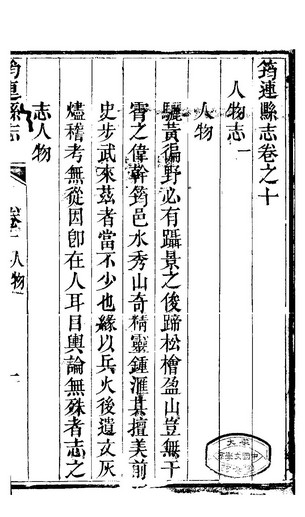 筠連縣志卷之十
人物志一
人物
驪黃徧野必有躡景之俊蹄松檜盈山豈無干
霄之偉幹筠邑水秀山奇精靈鍾滙其擅美前
史步武來茲者當不少也緣以兵火後遺文灰
燼稽考無從因卽在人耳目輿論無殊者志之
志人物
筠連縣志
人物
一